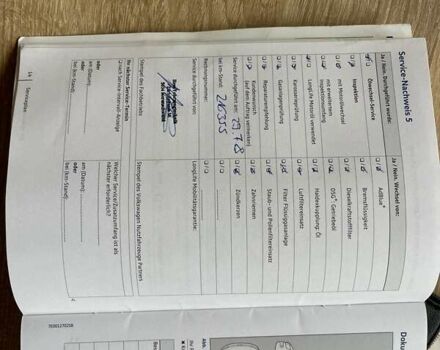 Service-Nachweis 5
Ja / Nein, Durchgeführt wurde:
Ölwechsel-Service
Inspektion
mit Motorölwechsel
mit erweitertem
Inspektionsumfang
LongLife Motoröl verwendet
Karosserieprüfung
Gasanlagenprüfung
Reparaturempfehlung
Kundenwunsch
(auf dem Auftrag vermerken)
Service durchgeführt am:
bei km-Stand:
Rechnungsnummer:
Service durchgeführt von:
Stempel des Fachbetriebs
Ihr nächster Service-Termin
nach Service-Intervall-Anzeige
oder
am (Datum):
bei (km-Stand):
14 Serviceplan
Ja / Nein, Wechsel von:
AdBlue®
Bremsflüssigkeit
Dieselkraftstofffilter
DSG®-Getriebeöl
Haldexkupplung: Öl
Luftfiltereinsatz
Filter Flüssiggasanlage
Staub- und Pollenfiltereinsatz
Zahnriemen
Zündkerzen
LongLife Mobilitätsgarantie:
Stempel des Volkswagen Nutzfahrzeuge Partners
Welcher Service/Zusatzumfang ist als
nächster erforderlich?
am (Datum):
oder
bei (km-Stand):
Abb.